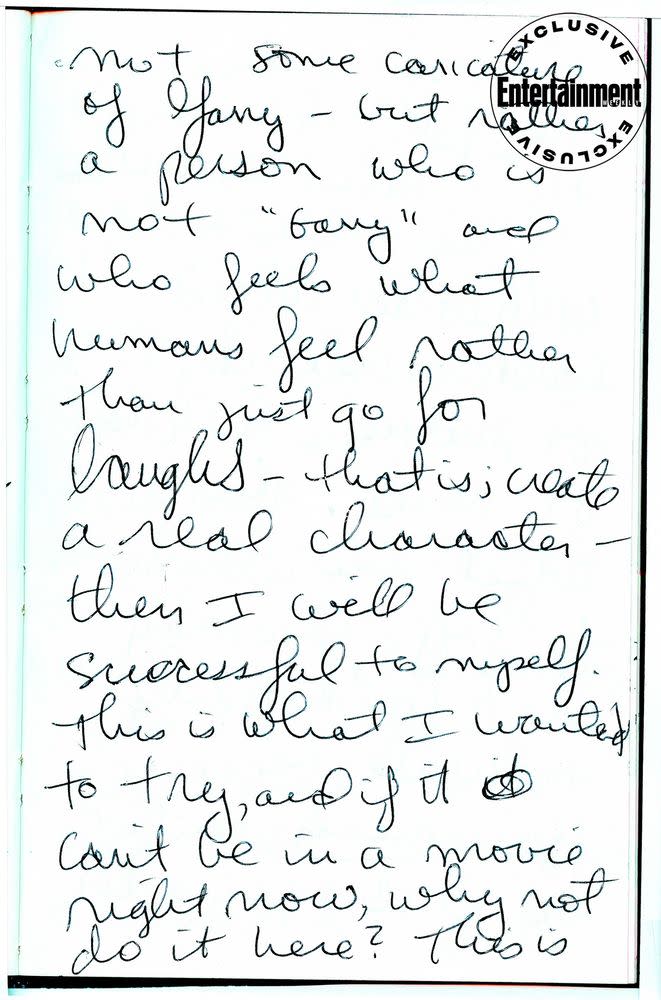 not some caricature
of Garry – but rather
a person who is
not "Garry" and
who feels what
humans feel rather
than just go for
laughs – that is; create
a real character –
then I will be
successful to myself.
This is what I wanted
to try, and if it
can't be in a movie
right now, why not
do it here? This is
EXCLUSIVE
Entertainment
WEEKLY
EXCLUSIVE